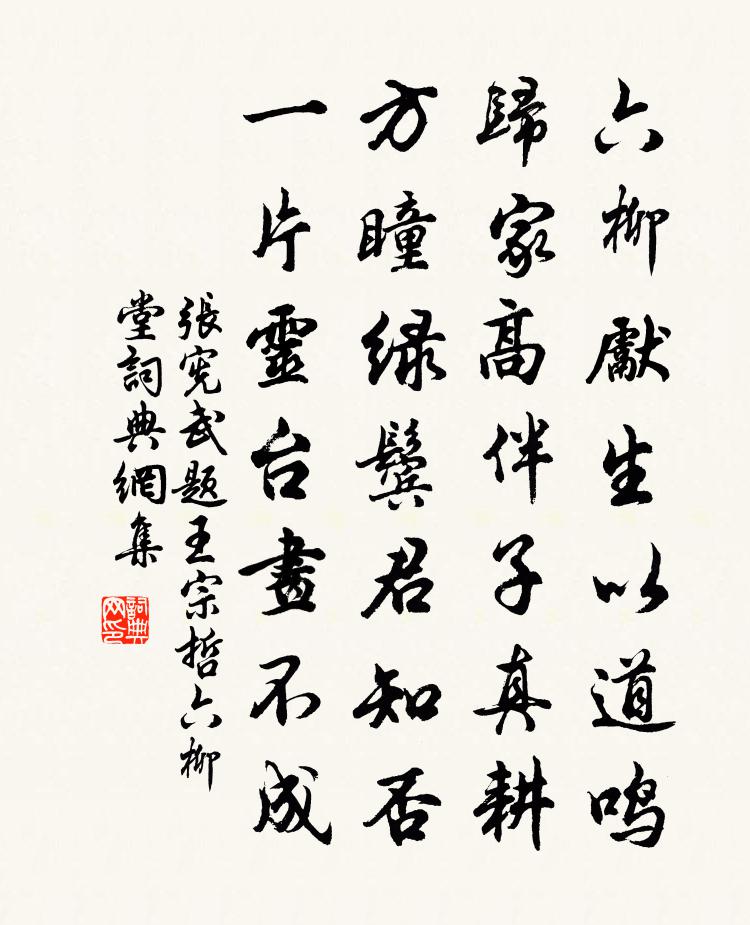 六柳獻生以道鳴
歸家高伴子真耕
方瞳緑鬢君知否
一片靈台畫不成
張宪武題王宗哲六柳
堂詞典網集
詞典
网印